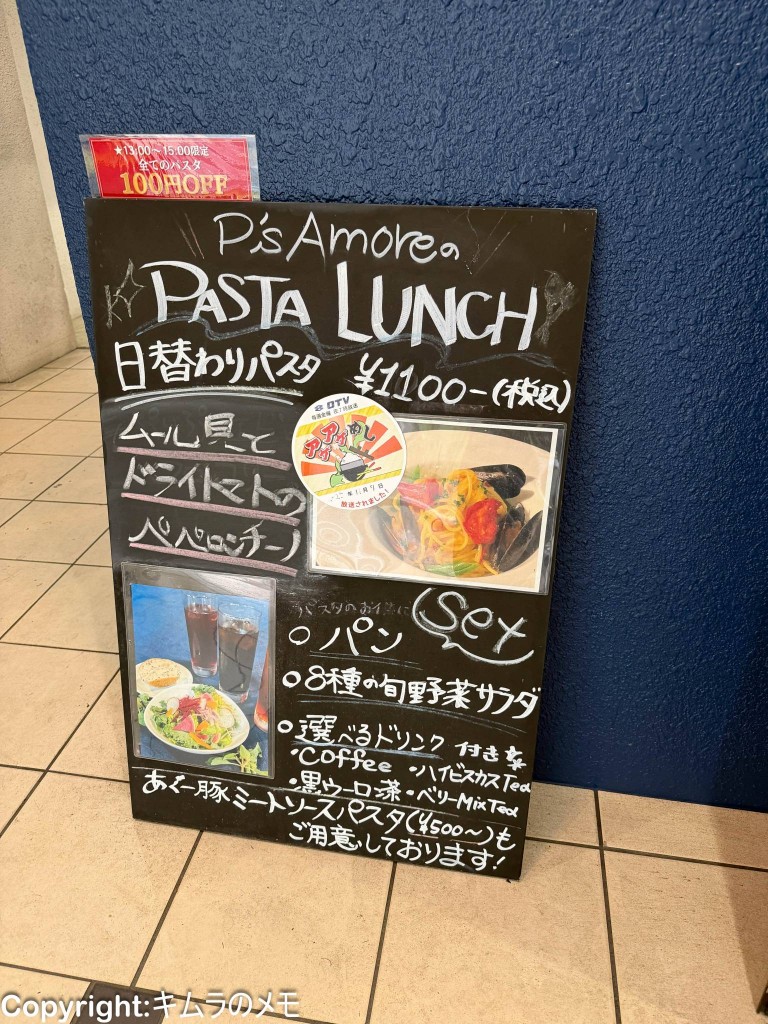 ★13:00～15:00限定
全てのパスタ
100円OFF
P'sAmoreの
PASTA LUNCH
日替わりパスタ ¥1100-(税込)
ムール貝と
ドライトマトの
ペペロンチーノ
QTV
アゲアゲめし
放送されました!
パスタのお供に
Set
○パン
○8種の旬野菜サラダ
○選べるドリンク 付き
・Coffee ・ハイビスカスTea
・黒ウーロン茶・ベリーMixTea
あぐー豚ミートソースパスタ(¥500～)も
ご用意しております!
Copyright:キムラのメモ